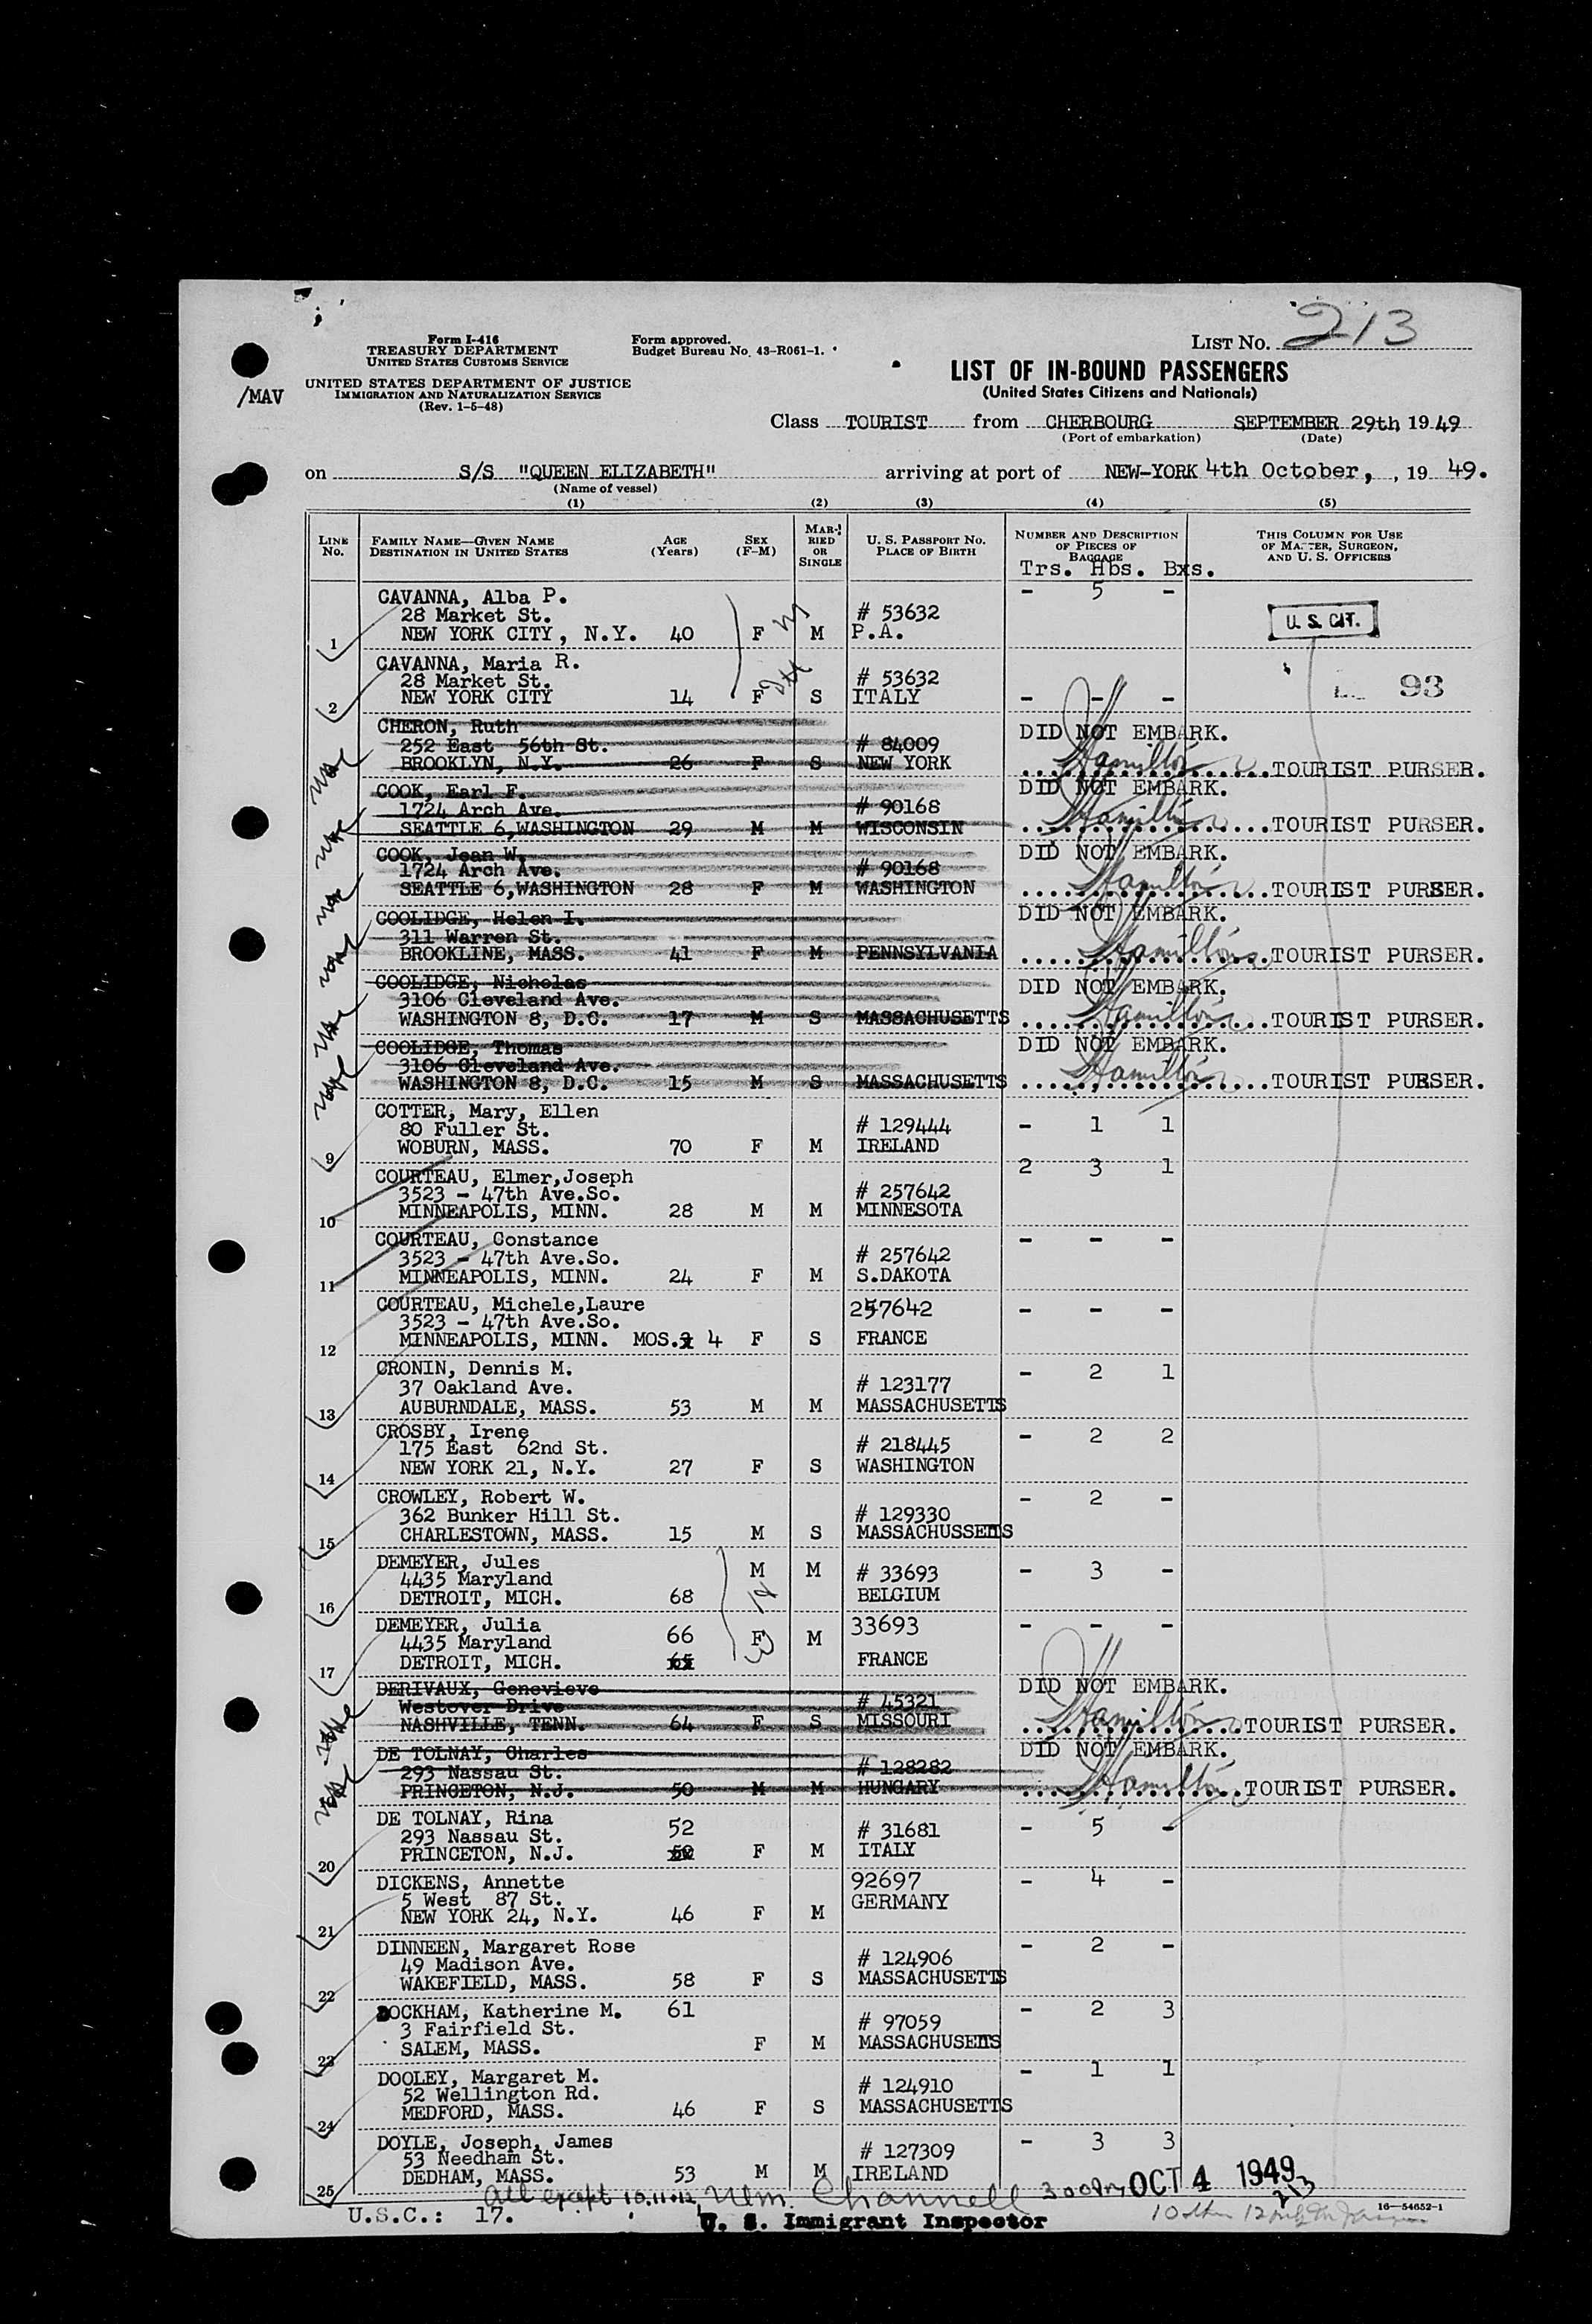 213
Form I-416
TREASURY DEPARTMENT
UNITED STATES CUSTOMS SERVICE
Form approved.
Budget Bureau No. 43-R061-1.
LIST NO.
/MAV
UNITED STATES DEPARTMENT OF JUSTICE
IMMIGRATION AND NATURALIZATION SERVICE
(Rev. 1-5-48)
LIST OF IN-BOUND PASSENGERS
(United States Citizens and Nationals)
Class TOURIST from CHERBOURG SEPTEMBER 29th, 1949
(Port of embarkation) (Date)
on S/S "QUEEN ELIZABETH" arriving at port of NEW-YORK 4th October, , 19 49.
(Name of vessel)
(1) (2) (3) (4) (5)
LINE NO. FAMILY NAME—GIVEN NAME DESTINATION IN UNITED STATES AGE (Years) SEX (F-M) MARRIED OR SINGLE U. S. PASSPORT NO. PLACE OF BIRTH NUMBER AND DESCRIPTION OF PIECES OF BAGGAGE THIS COLUMN FOR USE OF MASTER, SURGEON, AND U. S. OFFICERS
Trs. Hbs. Bxs.
CAVANNA, Alba P. - 5 -
28 Market St. # 53632 U. S. CIT.
1 NEW YORK CITY, N.Y. 40 F M P.A.
CAVANNA, Maria R.
28 Market St. # 53632
2 NEW YORK CITY 14 F S ITALY - - - 93
CHERON, Ruth DID NOT EMBARK.
252 East 56th St. # 84009 Hamilton
BROOKLYN, N.Y. 26 F S NEW YORK TOURIST PURSER.
COOK, Earl F. DID NOT EMBARK.
1724 Arch Ave. # 90168 Hamilton
SEATTLE 6, WASHINGTON 29 M M WISCONSIN TOURIST PURSER.
COOK, Jean W. DID NOT EMBARK.
1724 Arch Ave. # 90168 Hamilton
SEATTLE 6, WASHINGTON 28 F M WASHINGTON TOURIST PURSER.
COOLIDGE, Helen I. DID NOT EMBARK.
311 Warren St. Hamilton
BROOKLINE, MASS. 41 F M PENNSYLVANIA TOURIST PURSER.
COOLIDGE, Nicholas DID NOT EMBARK.
3106 Cleveland Ave. Hamilton
WASHINGTON 8, D.C. 17 M S MASSACHUSETTS TOURIST PURSER.
COOLIDGE, Thomas DID NOT EMBARK.
3106 Cleveland Ave. Hamilton
WASHINGTON 8, D.C. 15 M S MASSACHUSETTS TOURIST PURSER.
COTTER, Mary, Ellen
80 Fuller St. # 129444 - 1 1
9 WOBURN, MASS. 70 F M IRELAND
COURTEAU, Elmer,Joseph 2 3 1
3523 - 47th Ave.So. # 257642
10 MINNEAPOLIS, MINN. 28 M M MINNESOTA
COURTEAU, Constance - - -
3523 - 47th Ave.So. # 257642
11 MINNEAPOLIS, MINN. 24 F M S.DAKOTA
COURTEAU, Michele,Laure 257642 - - -
3523 - 47th Ave.So.
12 MINNEAPOLIS, MINN. MOS. 4 F S FRANCE
CRONIN, Dennis M. - 2 1
37 Oakland Ave. # 123177
13 AUBURNDALE, MASS. 53 M M MASSACHUSETTS
CROSBY, Irene - 2 2
175 East 62nd St. # 218445
14 NEW YORK 21, N.Y. 27 F S WASHINGTON
CROWLEY, Robert W. - 2 -
362 Bunker Hill St. # 129330
15 CHARLESTOWN, MASS. 15 M S MASSACHUSSETTS
DEMEYER, Jules M M # 33693 - 3 -
4435 Maryland
16 DETROIT, MICH. 68 BELGIUM
DEMEYER, Julia 66 33693 - - -
4435 Maryland F M
17 DETROIT, MICH. 65 FRANCE
DERIVAUX, Genevieve DID NOT EMBARK.
Westover Drive # 45321 Hamilton
NASHVILLE, TENN. 64 F S MISSOURI TOURIST PURSER.
DE TOLNAY, Charles DID NOT EMBARK.
293 Nassau St. # 128282 Hamilton
PRINCETON, N.J. 50 M M HUNGARY TOURIST PURSER.
DE TOLNAY, Rina 52 # 31681 - 5 -
293 Nassau St.
20 PRINCETON, N.J. 50 F M ITALY
DICKENS, Annette 92697 - 4 -
5 West 87 St. GERMANY
21 NEW YORK 24, N.Y. 46 F M
DINNEEN, Margaret Rose - 2 -
49 Madison Ave. # 124906
22 WAKEFIELD, MASS. 58 F S MASSACHUSETTS
DOCKHAM, Katherine M. 61 - 2 3
3 Fairfield St. # 97059
23 SALEM, MASS. F M MASSACHUSETTS
DOOLEY, Margaret M. - 1 1
52 Wellington Rd. # 124910
24 MEDFORD, MASS. 46 F S MASSACHUSETTS
DOYLE, Joseph, James - 3 3
53 Needham St. # 127309
25 DEDHAM, MASS. 53 M M IRELAND
All except 10.11.12, Wm. Channell OCT 4 1949
213
U.S.C.: 17. U. S. Immigrant Inspector 16—54652-1